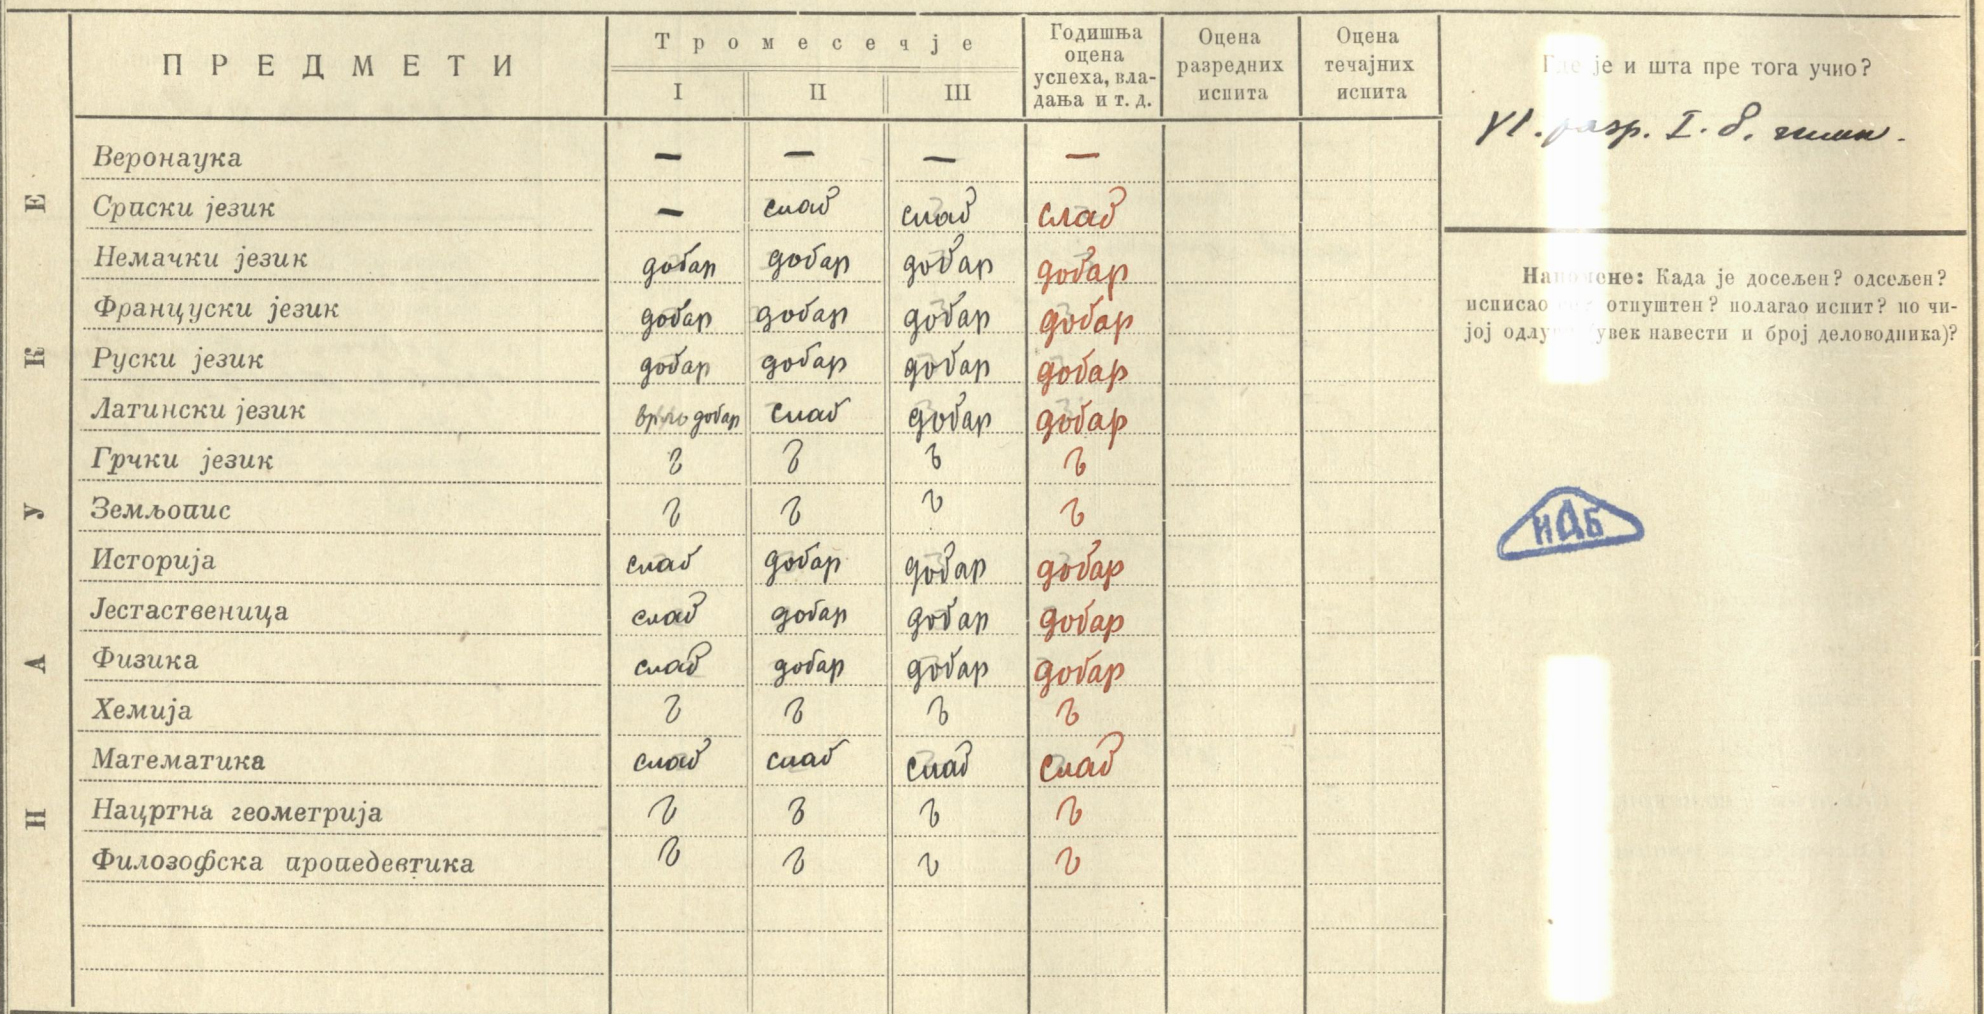 ПРЕДМЕТИ Тромесечје Годишња оцена успеха, вла- дања и т. д. Оцена разредних испита Оцена течајних испита
I II III
Где је и шта пре тога учио?
VI. разр. I. б. гимн.
НАУКЕ
Веронаука — — — —
Српски језик — слаб слаб слаб
Немачки језик добар добар добар добар
Француски језик добар добар добар добар
Руски језик добар добар добар добар
Латински језик врло добар слаб добар добар
Грчки језик
Земљопис
Историја слаб добар добар добар
Јестаственица слаб добар добар добар
Физика слаб добар добар добар
Хемија
Математика слаб слаб слаб слаб
Нацртна геометрија
Филозофска пропедевтика
Напомене: Када је досељен? одсељен?
исписао отпуштен? полагао испит? по чи-
јој (увек навести и број деловодника)?
ИАБ